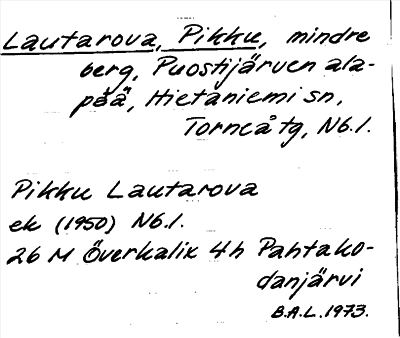 Lautarova, Pikku, mindre
berg, Puostijärven ala-
pää, Hietaniemi sn,
Torneå tg, Nb.l.
Pikku Lautarova
ek (1950) Nb.l.
26 M Överkalix 4h Pahtako-
danjärvi
B.A.L. 1973.